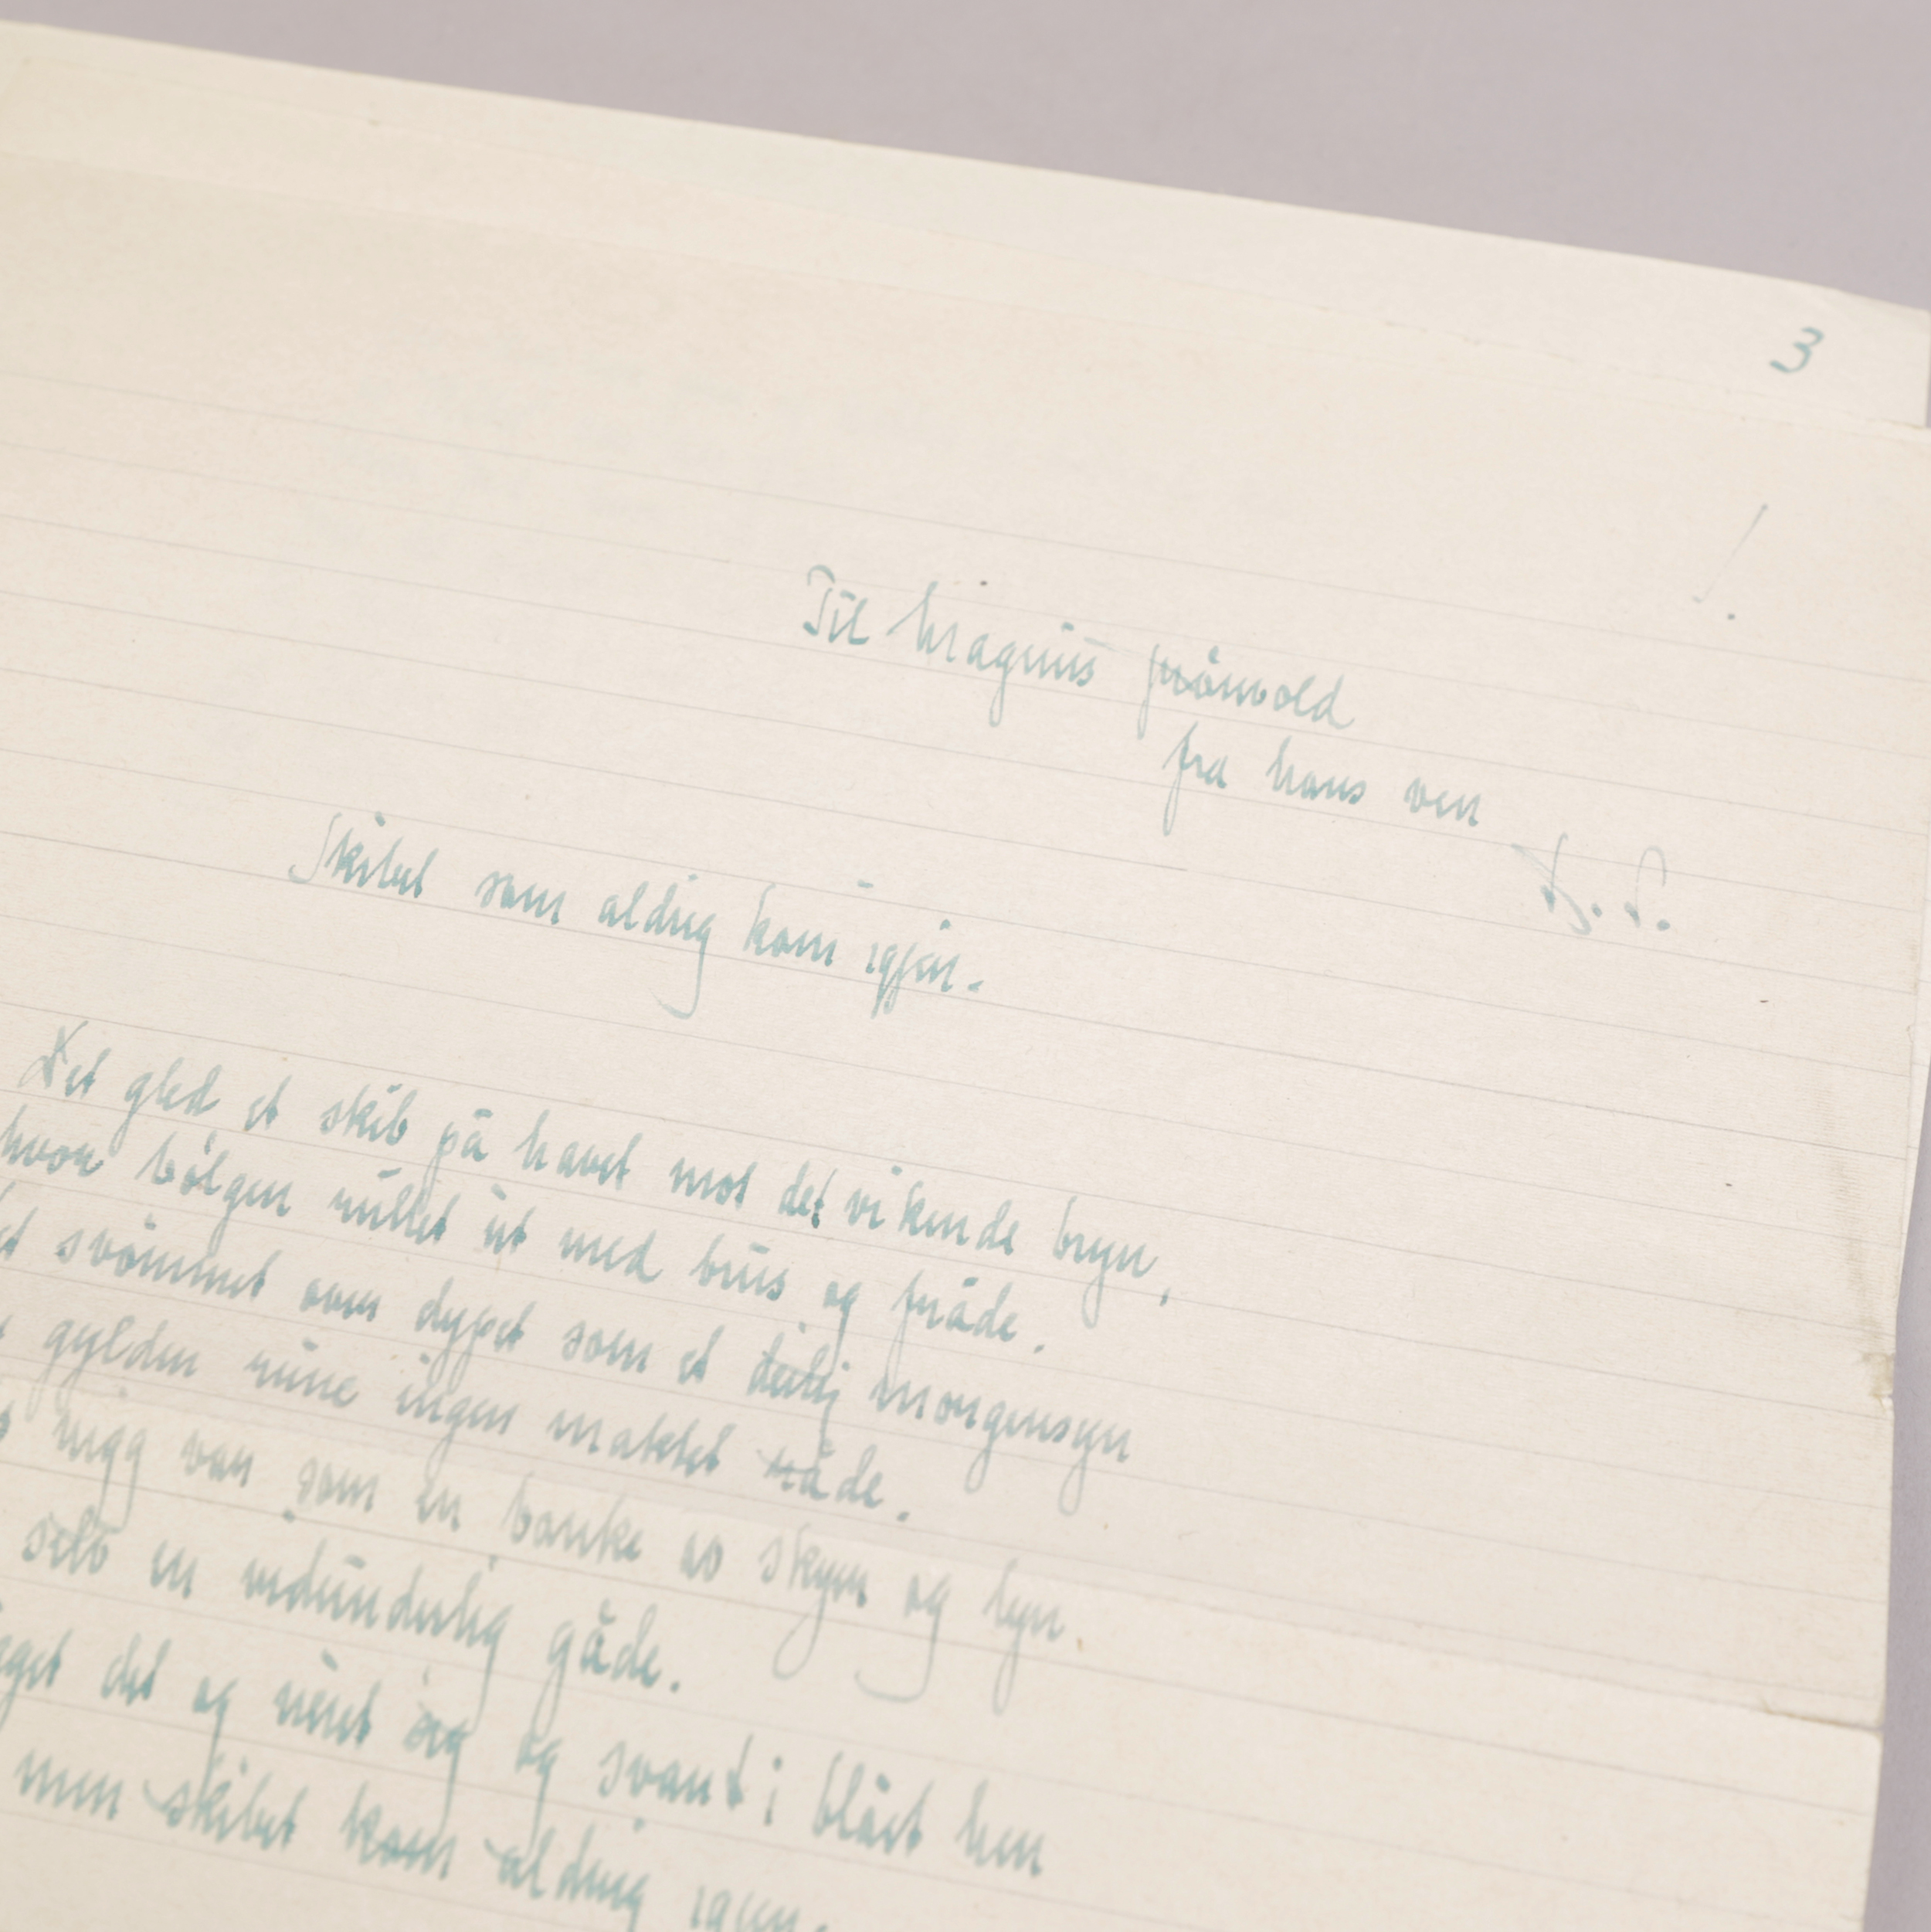 3
!
Til Magnus Grönvold
fra hans ven
D. S.
Skibet som aldrig kom igjen.
Det gled et skib på havet mot det vikende bryn,
hvor bölgen rullet ut med brus og fråde.
et svömmet over dypet som et deilig morgensyn
gylden rune ingen maktet råde.
rigg var som en banke av skyer og lyn
selv en vidunderlig gåde.
det og viket sig og svant i blået hen
men skibet kom aldrig igjen.